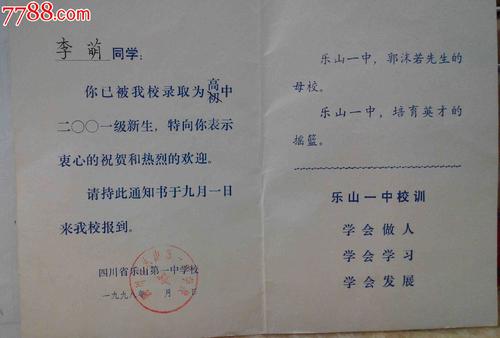 7788.com
李萌同学:
你已被我校录取为高初中
二〇〇一级新生，特向你表示
衷心的祝贺和热烈的欢迎。
请持此通知书于九月一日
来我校报到。
四川省乐山第一中学校
一九九八年 月 日
乐山一中，郭沫若先生的
母校。
乐山一中，培育英才的
摇篮。
乐山一中校训
学会做人
学会学习
学会发展